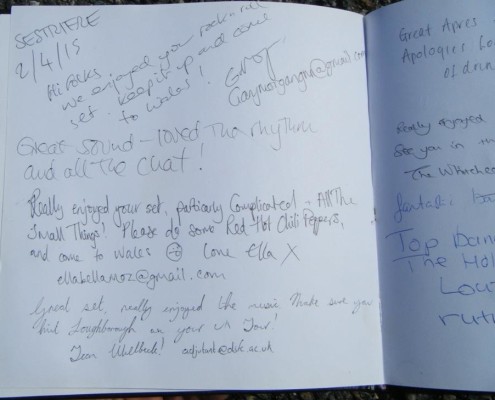 SESTRIERE
2/4/15
Hi folks
We enjoyed your rock n roll
set. keep it up and come
to Wales!
Great sound - loved the rhythm
and all the chat!
Really enjoyed your set, particulary Complicated + All The
Small Things! Please do some Red Hot Chili Peppers,
and come to Wales Love Ella X
ellabellamoz@gmail.com
Great set, really enjoyed the music. Make sure you
hit Loughborough on your UK Tour!
Team
Great Apres
Apologies for
of drin
Really enjoyed
See you in
The
fantastic
Top Dann
The Hol
Lou